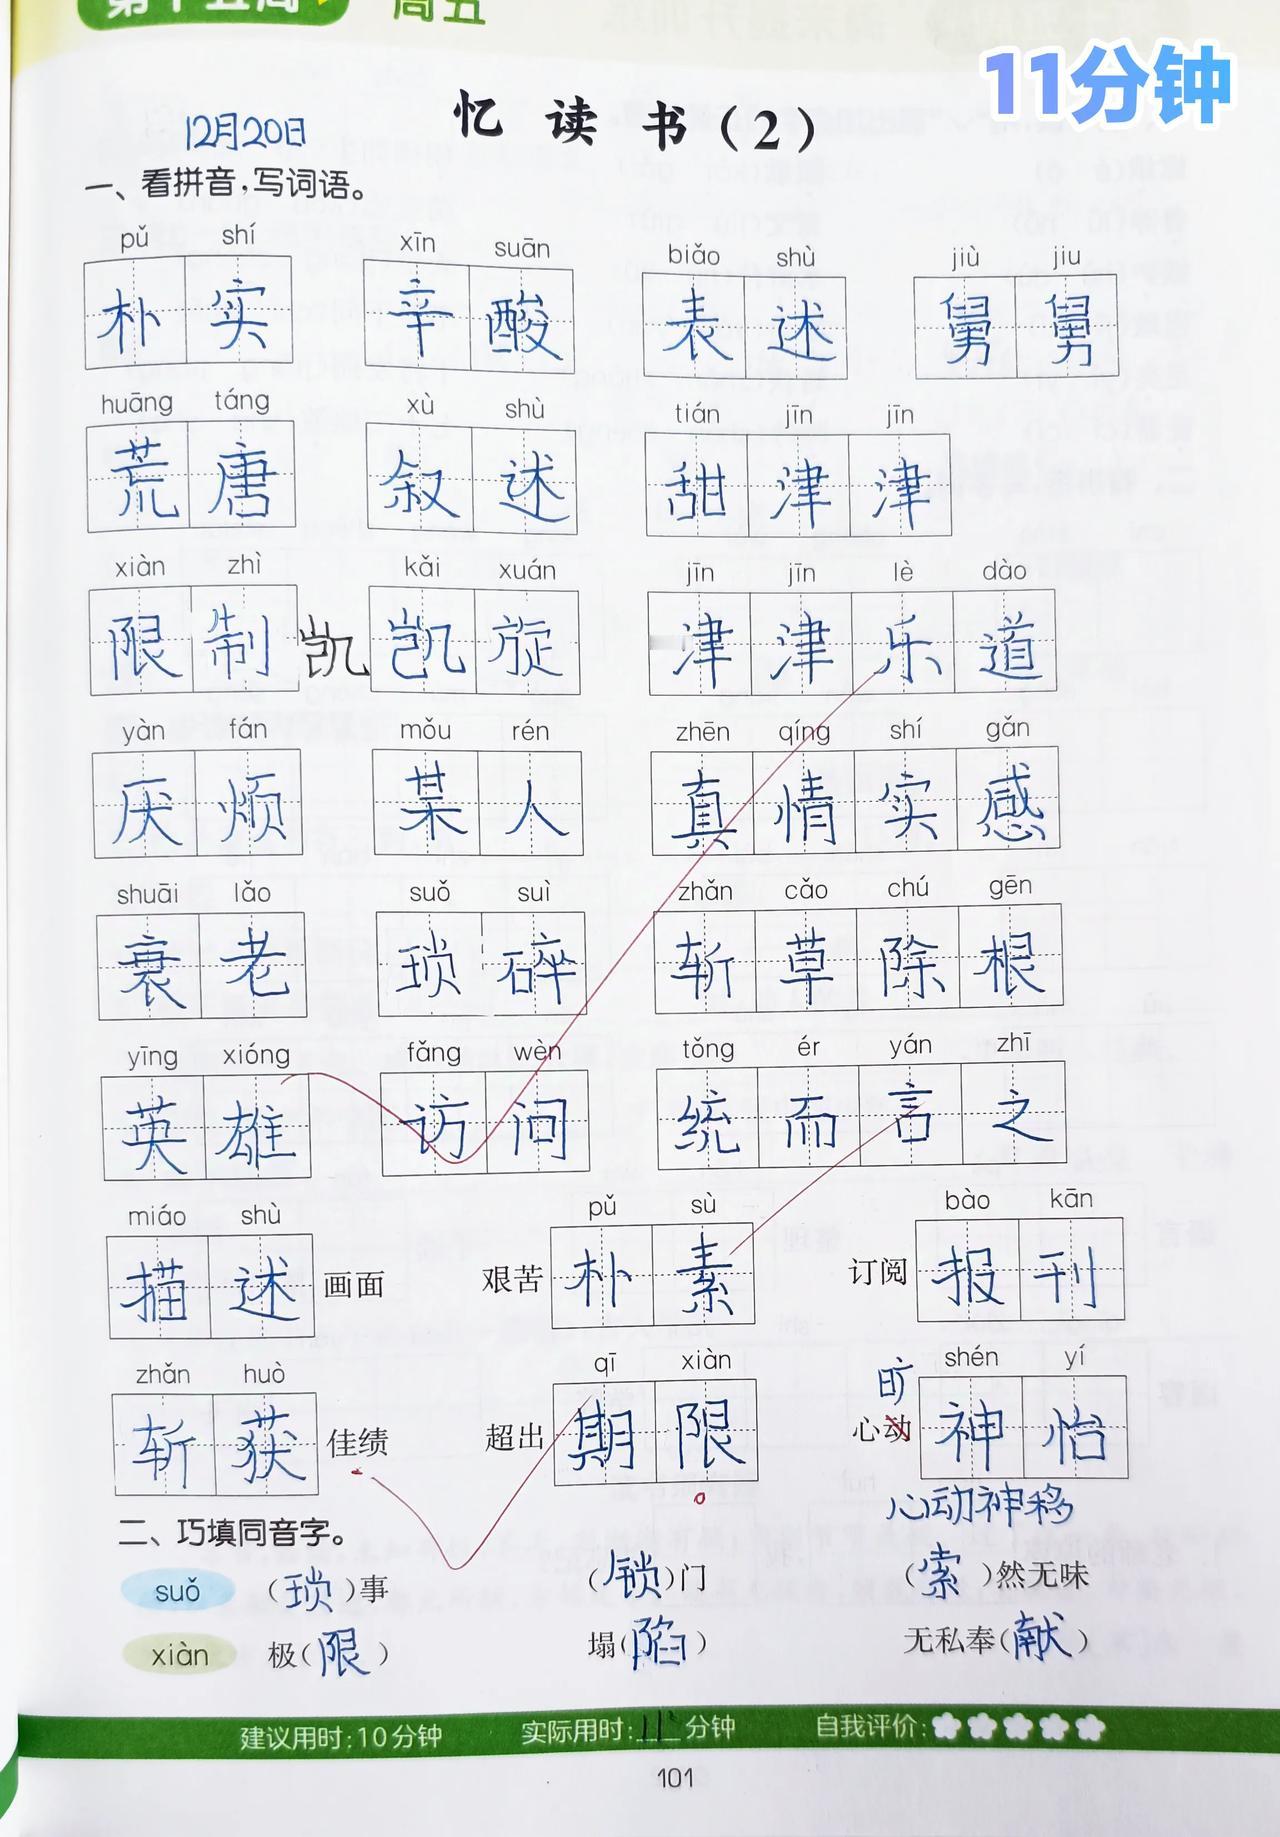 第十五周 周五
11分钟
忆读书(2)
12月20日
一、看拼音,写词语。
pǔ shí xīn suān biǎo shù jiù jiu
朴实 辛酸 表述 舅舅
huāng táng xù shù tián jīn jīn
荒唐 叙述 甜津津
xiàn zhì kǎi xuán jīn jīn lè dào
限制 凯 凯旋 津津乐道
yàn fán mǒu rén zhēn qíng shí gǎn
厌烦 某人 真情实感
shuāi lǎo suǒ suì zhǎn cǎo chú gēn
衰老 琐碎 斩草除根
yīng xióng fǎng wèn tǒng ér yán zhī
英雄 访问 统而言之
miáo shù pǔ sù bào kān
描述画面 艰苦朴素 订阅报刊
zhǎn huò qī xiàn shén yí
旷
斩获佳绩 超出期限 心动神怡
心动神移
二、巧填同音字。
suǒ (琐)事 (锁)门 (索)然无味
xiàn 极(限) 塌(陷) 无私奉(献)
建议用时:10分钟 实际用时:11分钟 自我评价:
101